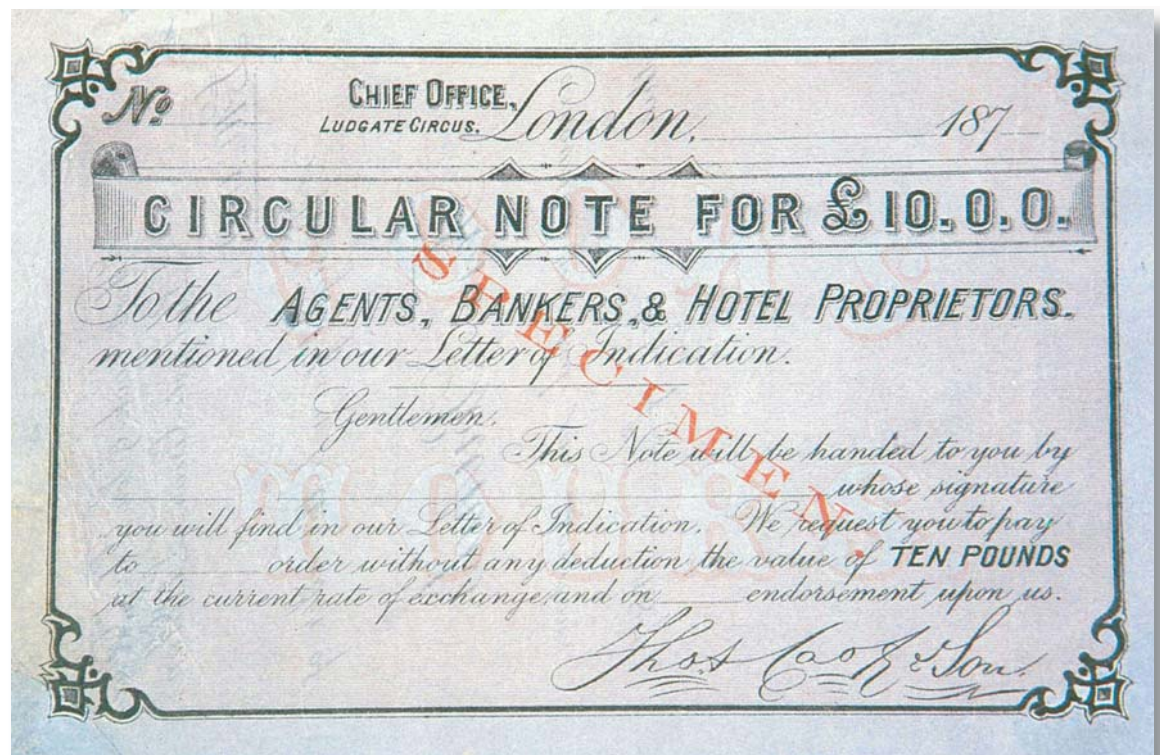 No
CHIEF OFFICE,
LUDGATE CIRCUS.
London, 187
CIRCULAR NOTE FOR £10.0.0.
To the AGENTS, BANKERS, & HOTEL PROPRIETORS.
mentioned in our Letter of Indication.
Gentlemen.
This Note will be handed to you by
whose signature
you will find in our Letter of Indication. We request you to pay
to order without any deduction the value of TEN POUNDS
at the current rate of exchange, and on endorsement upon us.
Thos Cook & Son.
SPECIMEN.
COOK'S
TOURS